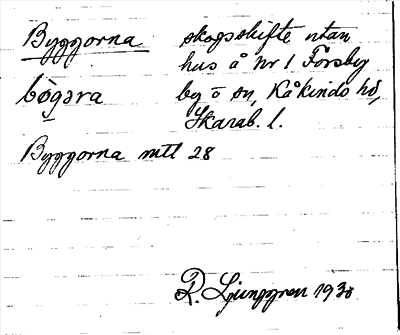 Byggorna skogsskifte utan
hus å Nr 1 Forsby
bøgəra by o sn, Kåkinds hd,
Skarab. l.
Byggorna mtl 28
R. Ljunggren 1938